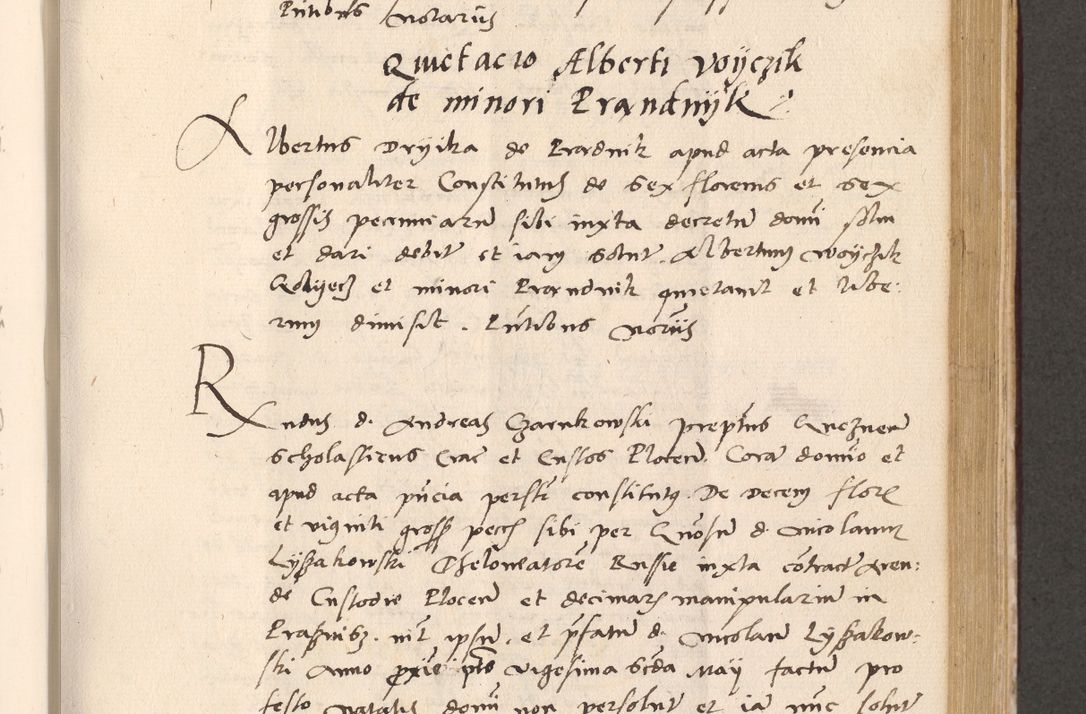 Pntibus Notariis
Quietacio Alberti Voÿczik
de minori Prandnÿk
Albertus Drÿika de Prandnik apud acta presencia
personaliter Constitutus de sex florenis et sex
grossis pecuniarum sibi iuxta decretum domi solui
et dari debit et iam solut. Albertum Woÿczik
et minori Prandnik quietauit et libe:
rum dimisit. Pntibus Noriis
Rndus d. Andreas Czarnkowski prepitus Gneznen
scholasticus Crac et Custos Plocen Cora domino et
apud acta pncia perstr constitutus. De Decem flore
et viginti gross pecc sibi per Gnosum d. Nicolaum
Lyssakowski Theloneatore Russie iuxta contractum Aren:
de Custodie Plocen et decimars manipularium in
et pfatum d. Nicolaum Lyssakow:
ski Anno proxie pto vigesima scda Maÿ factum pro
festo natalis domi non persolut et iam nunc solut